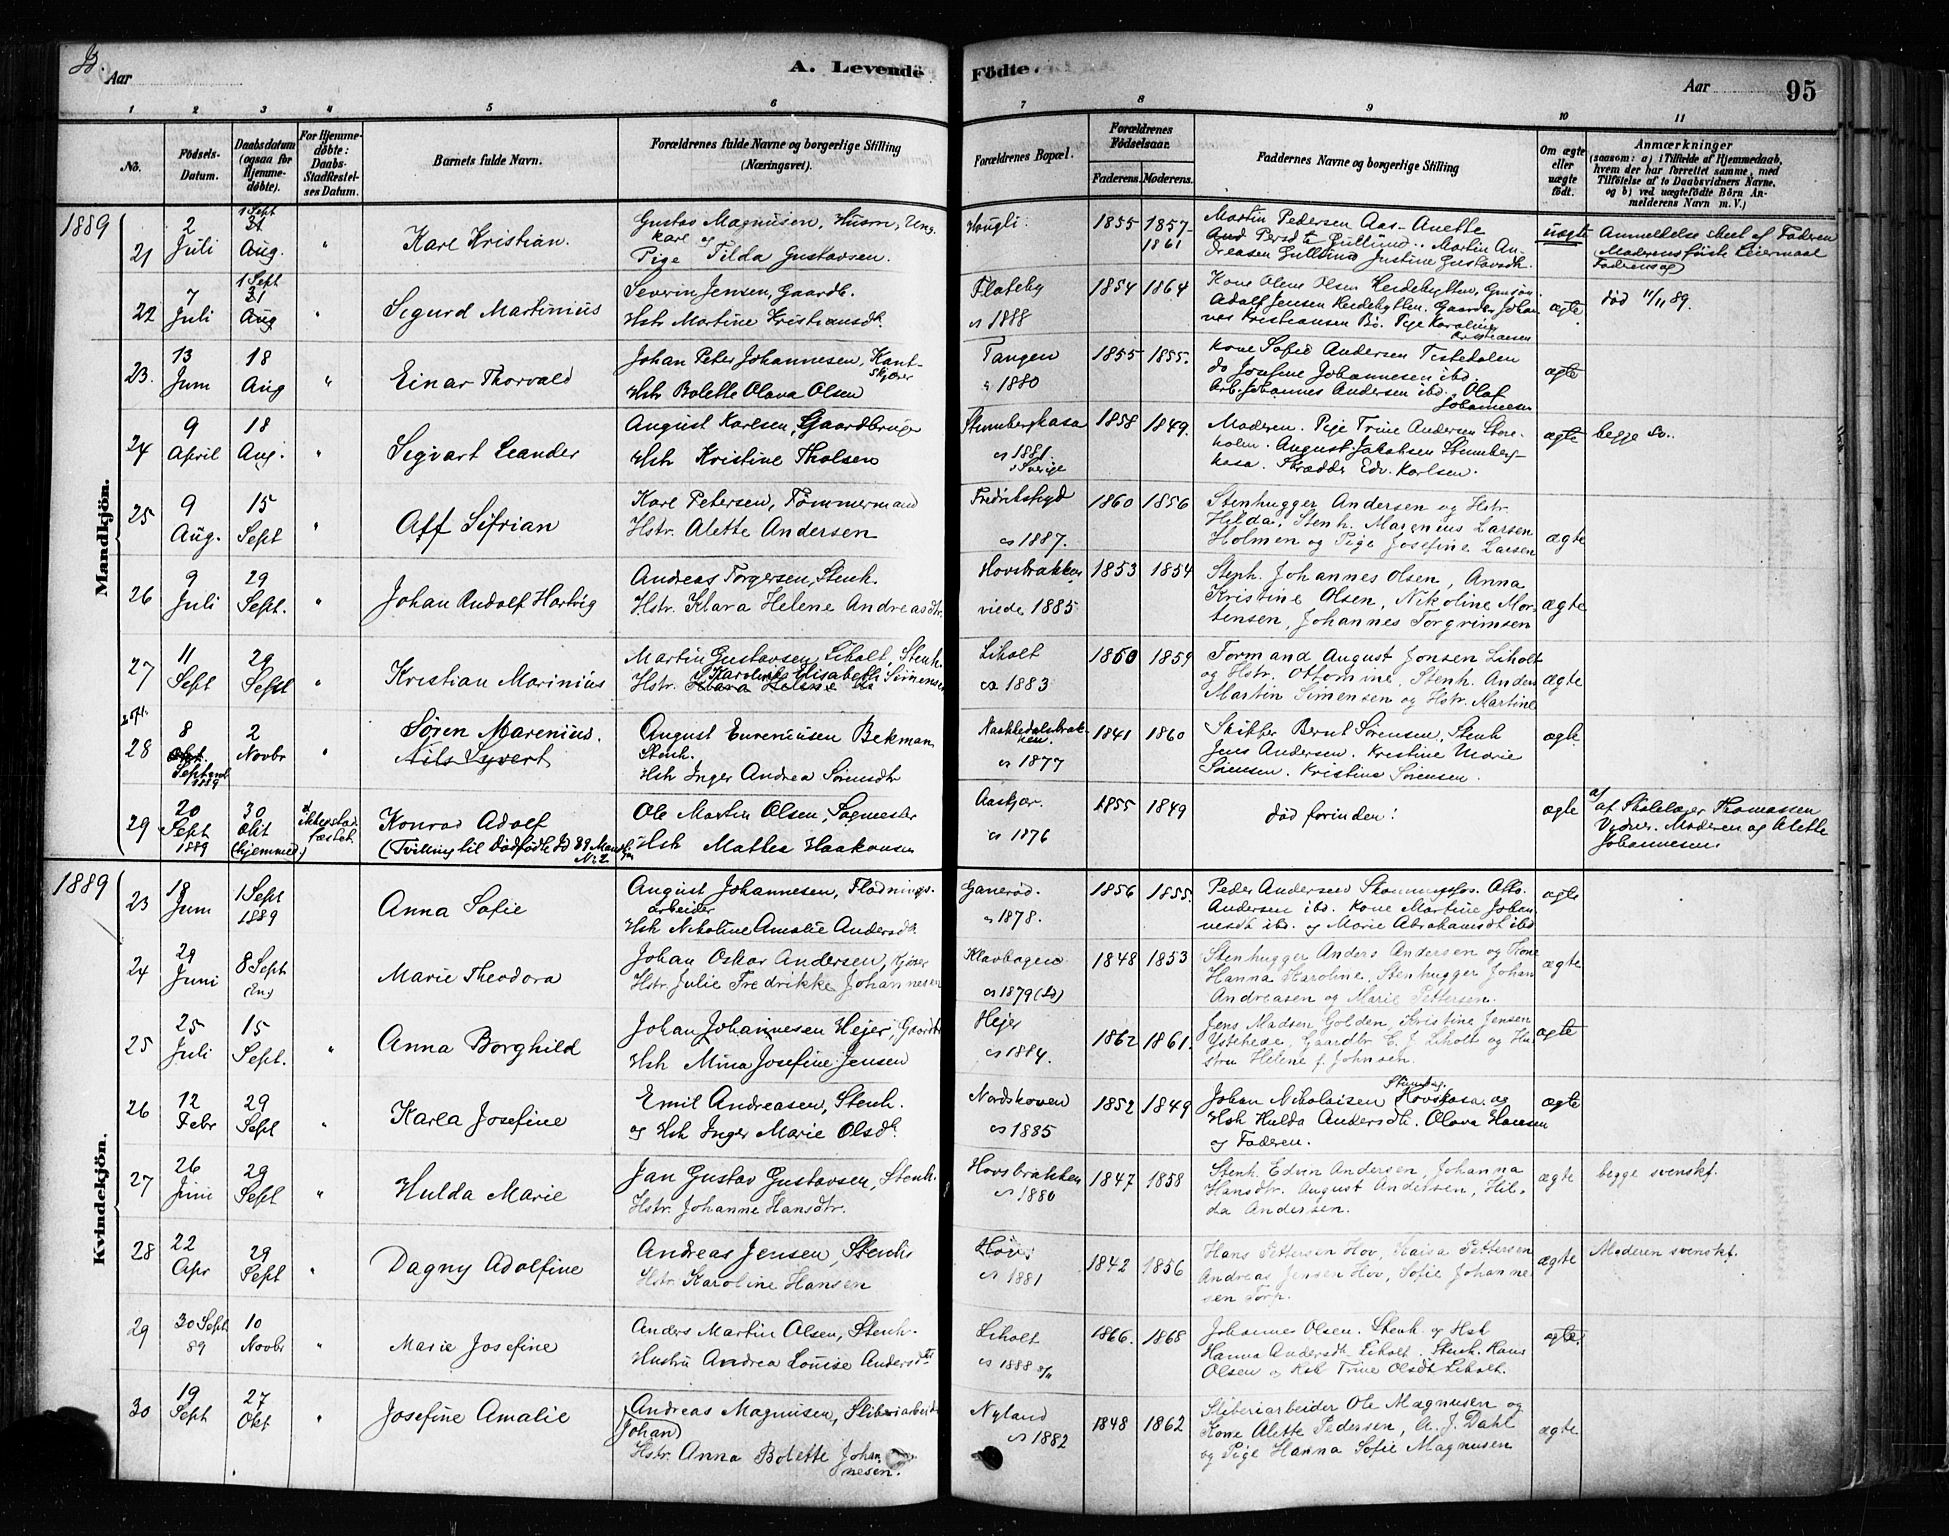 Id.
Aar
A. Levende Födte.
Aar 95
1 2 3 4 5 6 7 8 9 10 11
No.
Födsels-Datum.
Daabsdatum (ogsaa for Hjemmedöbte).
For Hjemmedöbte: Daabs-Stadfæstelses Datum.
Barnets fulde Navn.
Forældrenes fulde Navne og borgerlige Stilling (Næringsvei).
Forældrenes Bopæl.
Forældrenes Födselsaar.
Faderens. Moderens.
Faddernes Navne og borgerlige Stilling
Om ægte eller uægte födt.
Anmærkninger
(saasom: a) i Tilfælde af Hjemmedaab, hvem der har forrettet samme, med Tilföielse af to Daabsvidners Navne, og b) ved uægtefödte Börn Anmelderens Navn m. V.)
Mandkjön.
1889
21 2 Juli 1 Sept 21 Aug. " Karl Kristian. Gustav Magnusen, Husm, Ungkarl og Pige Tilda Gustavsen. Hougli. 1855 1857-1861 Martin Pedersen Aas- Anette And Persdtr Gullund.. Martin Andreasen Gullund Justine Gustavsdtr. uægte Anmeldelse skeet af Faderen Moderens første Leiermaal Faderens og
22 7 Juli 1 Sept 21 Aug Sigurd Martinius Severin Jensen, Gaardb. Hstr Martine Kristiansdtr. Flateby cs 1888 1854 1864 Kone Olene Olsen Heidehytten, Adolf Jensen Heidehytten, Gaardbr Johannes Kristiansen Bø. Pige Karoline Kristiansen ægte. død 11/11 89.
23. 13 Juni 18 Aug " Einar Thorvald Johan Peter Johannesen, Kantskjærer Hstr Bolette Olava Olsen Tangen cs 1880 1855 1855. Kone Sofie Andersen Tistedalen do Josefine Johannesen ibd. Arb. Johannes Andersen ibd. Olaf Johannesen ægte
24 9 April 18 Aug. " Sigvart Leander August Karlsen, Gaardbruger Hstr Kristine Tholsen Stumberghasa cs 1881. i Sverige 1858 1849. Moderen. Pige Trine Andersen Storeholm. August Jakobsen Stumberghasa. Skrædder Edv. Karlsen. ægte begge Sv.
25 9 Aug. 15 Sept " Alf Sifrian Karl Petersen, Tømmermand Hstr. Alette Andersen Fredrikshgd cs 1887. 1860 1856 Stenhugger Andersen og Hstr. Hilda, Stenh. Magnus Larsen Holmen og Pige Josefine Larsen ægte
26 9 Juli 29 Sept. " Johan Rudolf Hartvig Andreas Torgersen, Stenh. Hstr. Klara Helene Andreasdtr. Hovsbrakken viede 1885 1853 1854 Stenh. Johannes Olsen, Anna Kristine Olsen, Nikoline Mortensen, Johannes Torgrimsen ægte
27 11 Sept 29 Sept " Kristian Marinius Martin Gustavsen, Liholt, Stenh. Hstr. Karoline Elisabeth Simensen Klara Helene Liholt cs 1883 1860 1859 Formand August Jonsen Liholt og Hstr. Ottomine, Stenh. Anders Martin Simensen og Hstr. Martine ægte
28 8 Okt. Septembr 1889 2 Novbr " Søren Marenius. Nils Syvert August Eureniusen Bekman, Stenh. Hstr Inger Andrea Sørensdtr Nakkedalsbrakken. cs 1877 1841 1860 Skipper Bernt Sørensen, Stenh Jens Andersen. Kristine Marie Sørensen. Kristine Sørensen. ægte.
29 20 Sept 1889 30 Okt (hjemmed.) ikke stadfæstet. Konrad Adolf (Tvilling til Dødfødt Id 89 Mandkjøn No 2. Ole Martin Olsen, Sagmester Hstr Mathea Haakonsen Aaskjær. cs 1876 1855 1849 død forinden! ægte af Skolelærer Thomassen Vidner. Moderen og Alette Johannesen.
Kvindekjön.
1889
23 18 Juni 1 Sept 1889 Anna Sofie August Johannesen, Flødningsarbeider Hstr Nikoline Amalie Andersdtr. Ganerød. cs 1878. 1856 1855. Peder Andersen Skonningfos. Otto Andersen ibd. Kone Martine Johannesdtr ibd. og Marie Abrahamsdt ibd ægte
24 29 Juni 8 Sept (En) Marie Theodora Johan Oskar Andersen, Kjører Hstr. Julie Fredrikke Johannesen Klavhogen cs 1879 (Id) 1848 1853 Stenhugger Anders Andersen og Kone Hanna Karoline, Stenhugger Johan Andreasen og Marie Pettersen. ægte
25 25 Juli 15 Sept. " Anna Borghild Johan Johannesen Hejer, Gaardbr Hstr Mina Josefine Jensen Hejer cs 1884. 1862 1861. Jens Madsen Golden, Kristine Jensen Ystehede, Gaardbr. C. J. Liholt og Hustru Helene f. Johnsen. ægte
26 12 Febr 29 Sept " Karla Josefine Emil Andreasen, Stenh. og Hstr Inger Marie Olsdtr. Nordskoven cs 1885 1852 1849 Johan Nikolaisen Stumberg Hovshasa og Hstr Hulda Andersdtr. Olava Hansen og Faderen. ægte
27 26 Juni 29 Sept " Hulda Marie Jan Gustav Gustavsen, Stenh. Hstr. Johanne Hansdtr. Hovsbrakken cs 1880 1847 1858 Stenh. Edvin Andersen, Johanna Hansdtr. August Andersen, Hilda Andersen. ægte begge svenske.
28 22 Apr 29 Sept " Dagny Adolfine Andreas Jensen, Stenh. Hstr. Karoline Hansen Hov cs 1881 1842 1856 Hans Pettersen Hov, Kaisa Pettersen Andreas Jensen Hov, Sofie Johannesen Torp. ægte Moderen svensk.
29 30 Sept 89 10 Novbr " Marie Josefine Anders Martin Olsen, Stenh. Hustru Andrea Louise Andersdtr Liholt cs 1888 1866. 1868 Johannes Olsen. Stenh. og Hstr Hanna Andersdtr Liholt. Stenh. Hans Olsen og Hstr Trine Olsdt Liholt. ægte.
30 19 Sept 27 Okt " Josefine Amalie Andreas Magnusen, Sliberiarbeider (Johan) Hstr. Anna Bolette Johannesen. Nyland cs 1882 1848 1862 Sliberiarbeider Ole Magnusen og Kone Alette Pedersen, A. J. Dahl og Pige Hanna Sofie Magnusen ægte